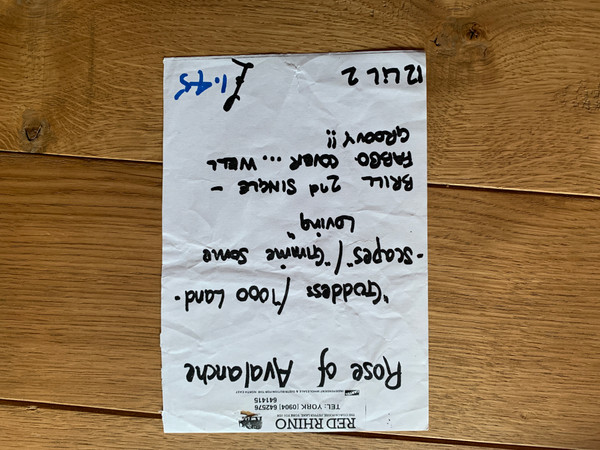 RED RHINO
TEL: YORK (0904) 642576
641415
Rose of Avalanche
"Goddess /1000 Land-
-scapes"/"Gimme Some
Loving"
BRILL 2nd SINGLE -
FABBO COVER ... WELL
GROOVY!!
12 LIL 2
£ 1.45